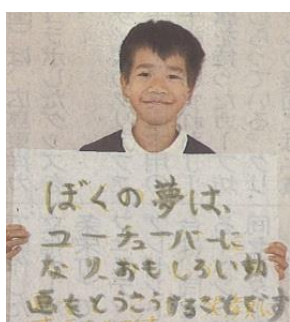 ぼくの夢は、
ユーチューバーに
なり、おもしろい動
画をとうこうすることです